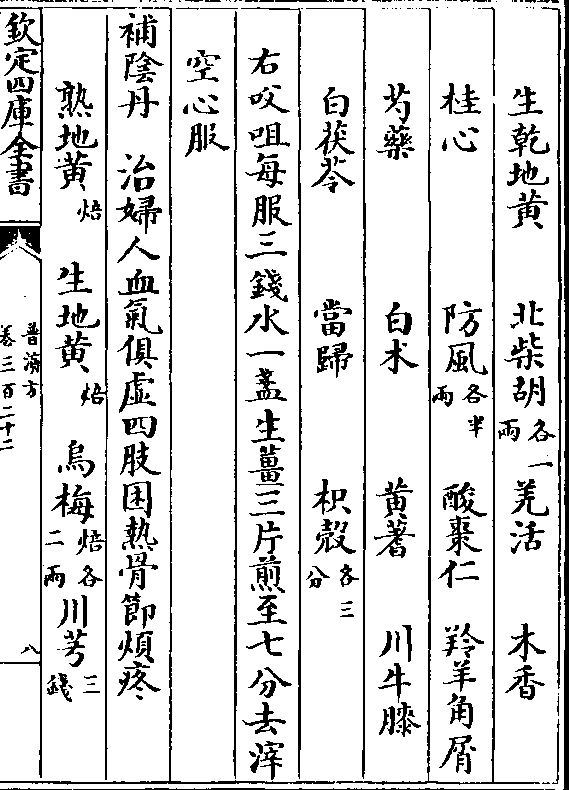 生乾地黄　北柴胡各一兩　羌活　木香
桂心　防風各半兩　酸棗仁　羚羊角屑
芍藥　白术　黄蓍　川牛膝
白茯苓　當歸　枳殻各三分
右㕮咀每服三錢水一盞生薑三片煎至七分去滓
空心服
補陰丹　治婦人血氣俱虚四肢困熱骨節煩疼
熟地黄焙　生地黄焙　烏梅焙各二兩　川芎三錢
欽定四庫全書
普濟方
卷三百二十二
八